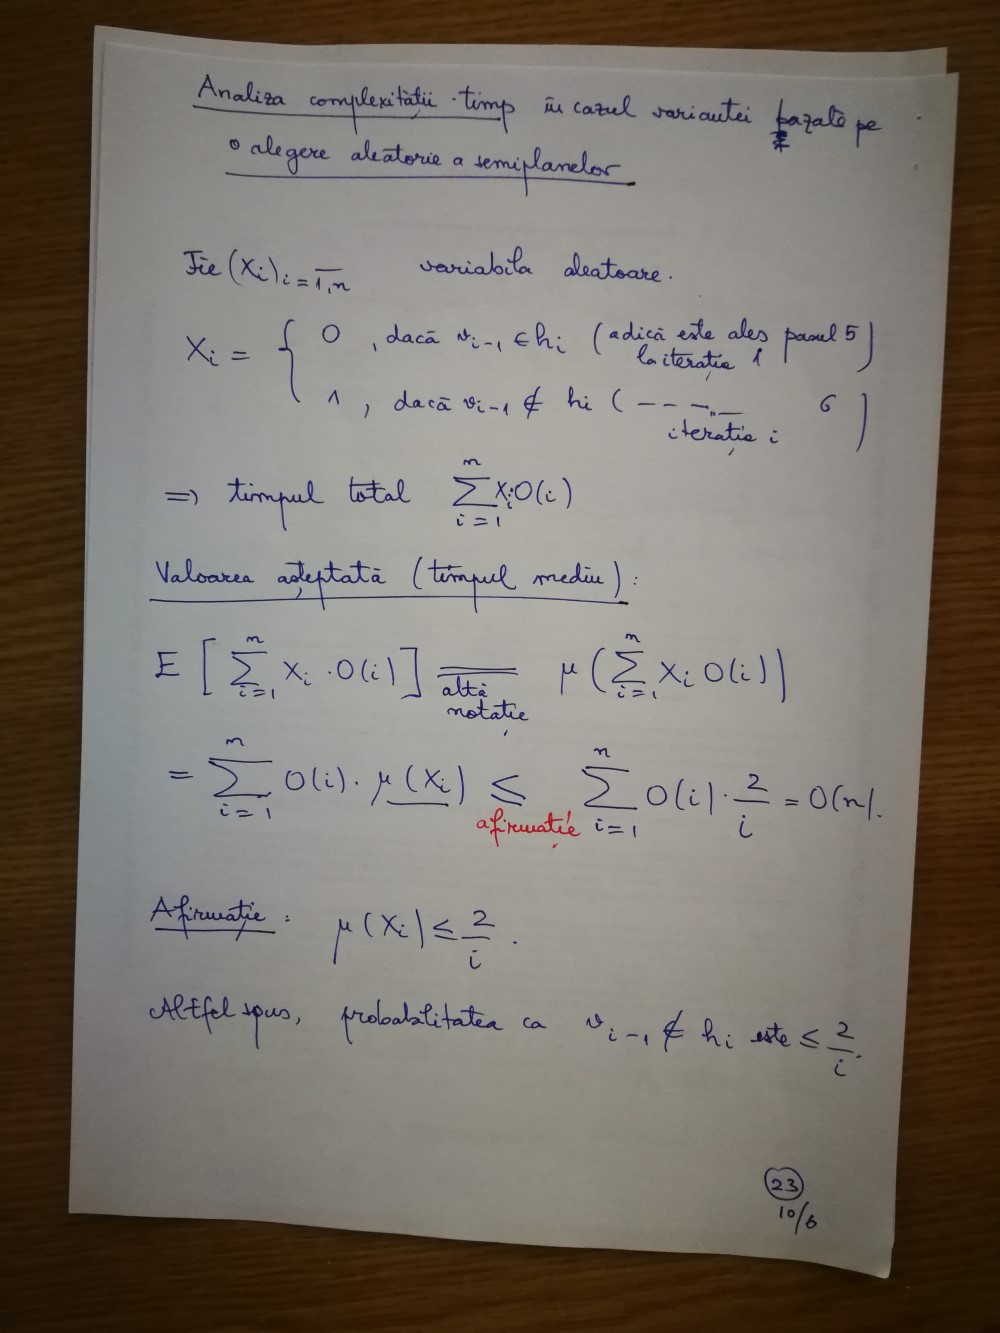 Analiza complexității-timp în cazul variantei bazate pe
o alegere aleatorie a semiplanelor
Fie (Xi)i=1,n variabila aleatoare.
Xi = { 0 , dacă vi-1 ∈ hi (adică este ales pasul 5
la iterația 1)
1 , dacă vi-1 ∉ hi ( — — –„— 6
iterația i )
=> timpul total ∑_{i=1}^{n} Xi O(i)
Valoarea așteptată (timpul mediu) :
E [ ∑_{i=1}^{n} Xi · O(i) ] = μ ( ∑_{i=1}^{n} Xi O(i) )
altă
notație
= ∑_{i=1}^{n} O(i) · μ (Xi) ≤ ∑_{i=1}^{n} O(i) · 2/i = O(n).
afirmație
Afirmație : μ (Xi) ≤ 2/i .
Altfel spus, probabilitatea ca vi-1 ∉ hi este ≤ 2/i .
23
10/6